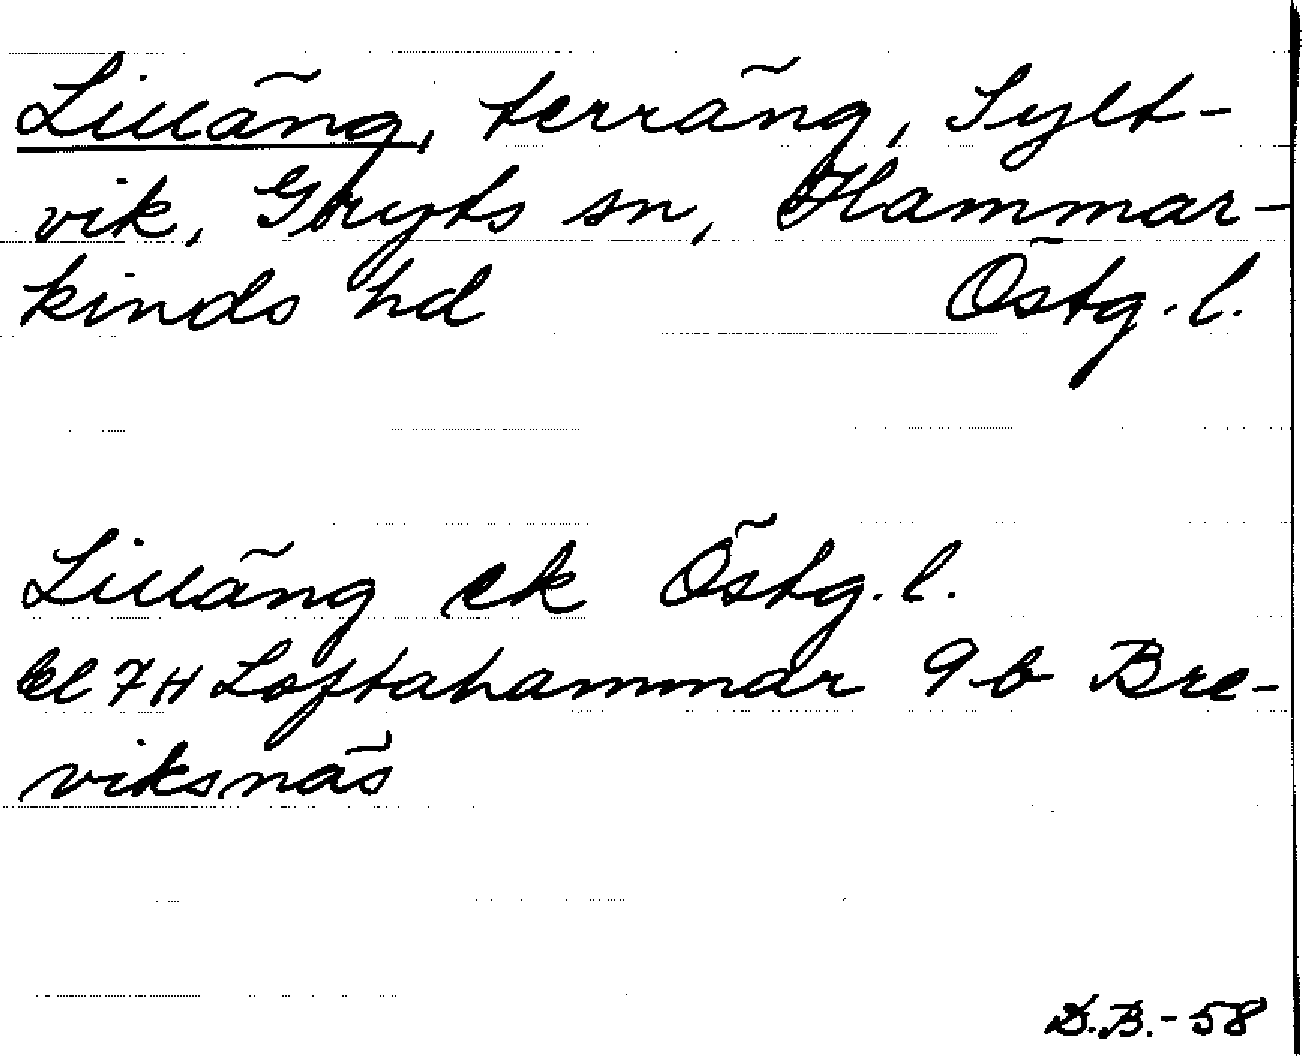 Lilläng, terräng, Sylt-
vik, Gryts sn, Hammar-
kinds hd Östg. l.
Lilläng ek Östg. l.
7H Loftahammar 9 b Bre-
viksnäs
D.B. - 58